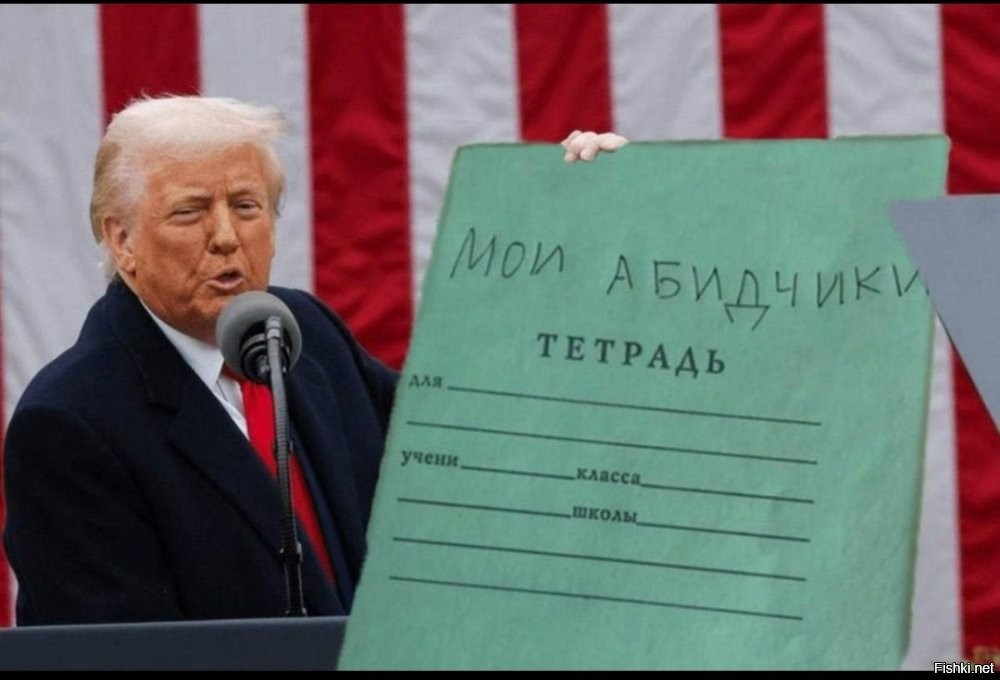 МОИ АБИДЧИКИ
ТЕТРАДЬ
для
учени класса
школы
Fishki.net